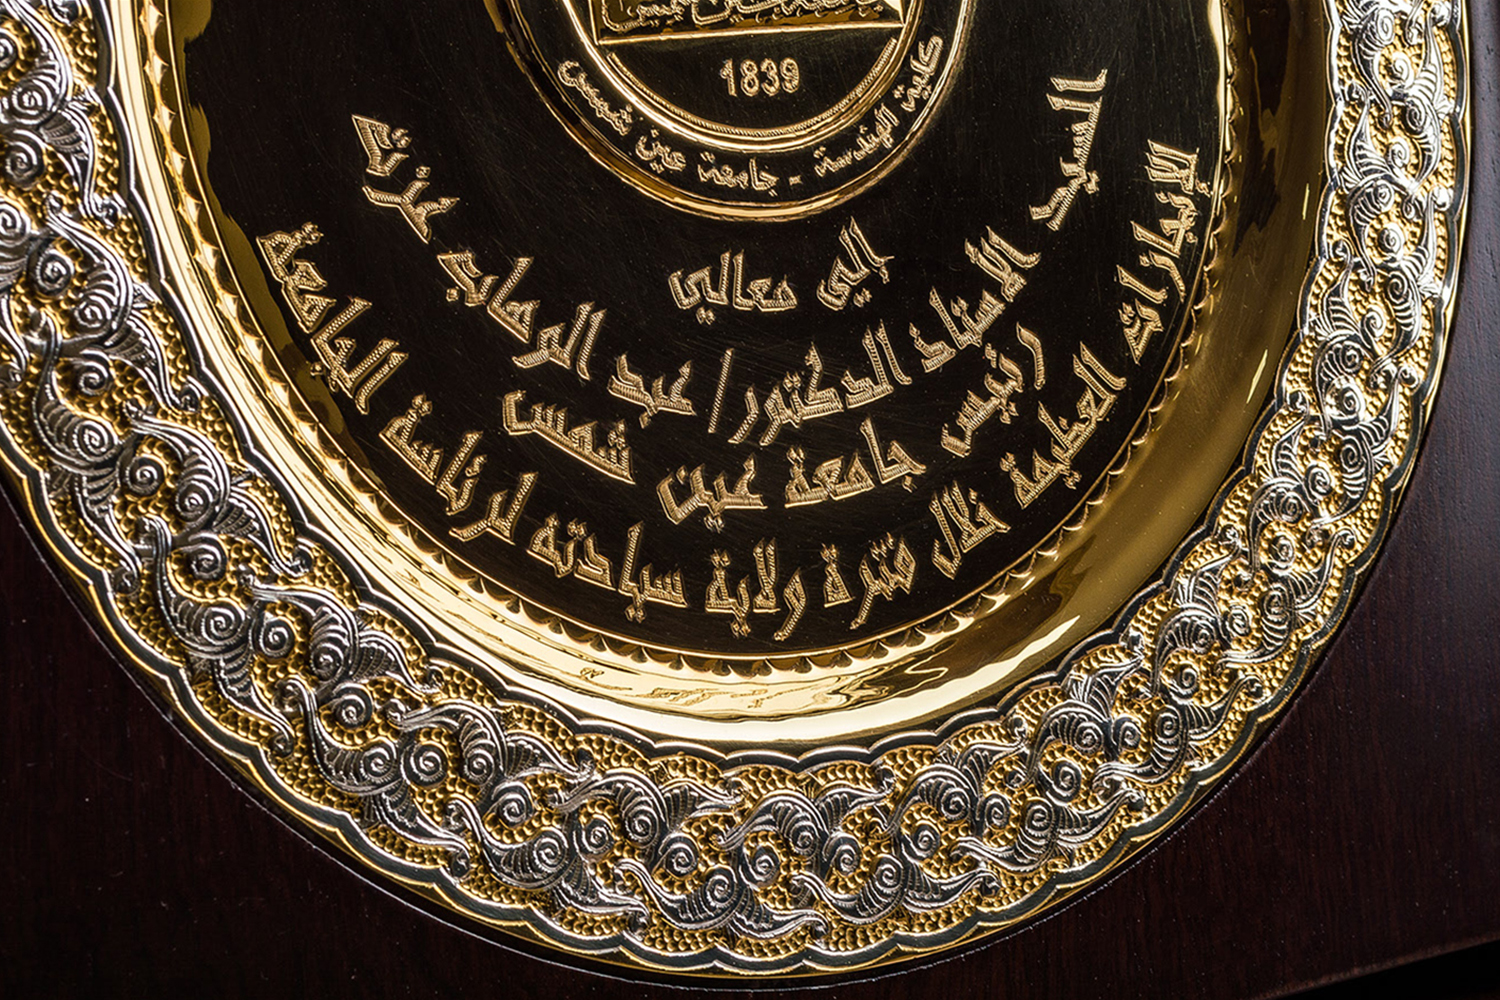 1839
كلية الهندسة - جامعة عين شمس
إلى معالي
السيد الاستاذ الدكتور/ عبد الوهاب عزت
رئيس جامعة عين شمس
للإنجازات العظيمة خلال فترة ولاية سيادته لرئاسة الجامعة